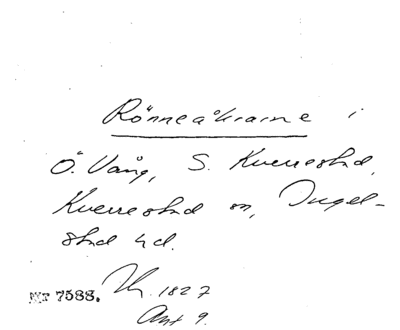 Rönneåkrarne i
Ö. Vång, S. Kverrestad,
Kverrestad sn, Ingel-
stad hd.
NYT 7588. Th. 1827
Akt 9.